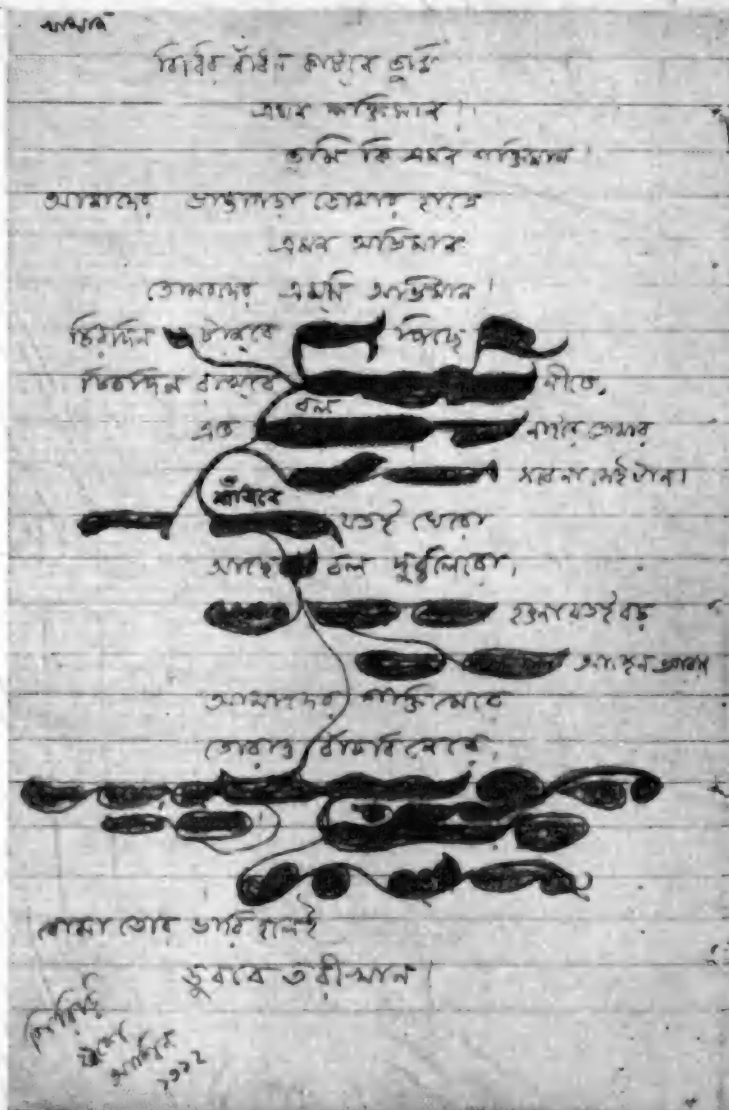 বিধির বাঁধন কাটবে তুমি
এমন শক্তিমান!
তুমি কি এমন শক্তিমান!
আমাদের ভাঙাগড়া তোমার হাতে
এমন অভিমান
তোমাদের এমনি অভিমান!
চিরদিন টানবে পিছে
চিরদিন রাখবে নীচে,
বল
এত নাইরে তোমার
সবেনা সেই টান।
যতই ঘেরো
আছে বল দুর্ব্বলেরো,
হওনা যতই বড়
আছেন ভগবান
আমাদের শক্তি মেরে
তোরাও বাঁচবিনেরে,
বোঝা তোর ভারি হলেই
ডুববে তরীখান।
গিরিডি
আশ্বিন
১৩১২